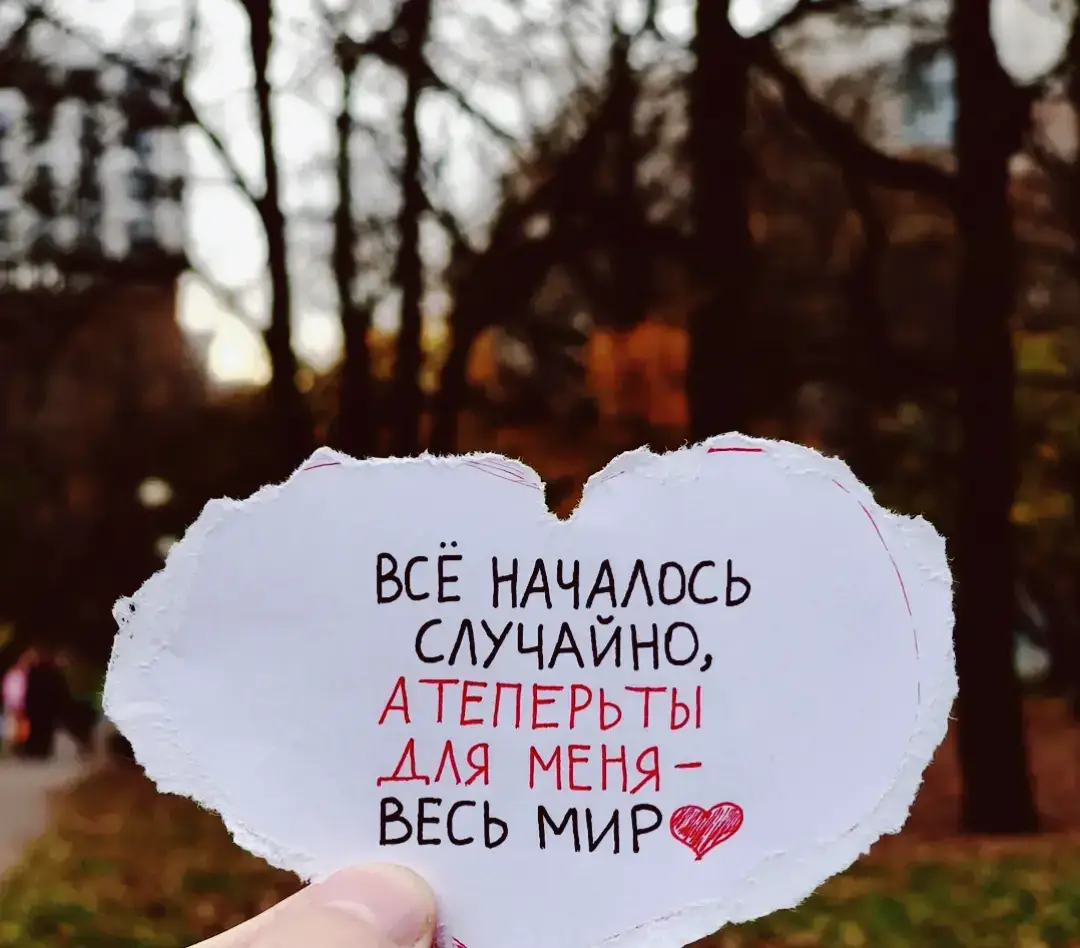 ВСЁ НАЧАЛОСЬ
СЛУЧАЙНО,
А ТЕПЕРЬ ТЫ
ДЛЯ МЕНЯ -
ВЕСЬ МИР